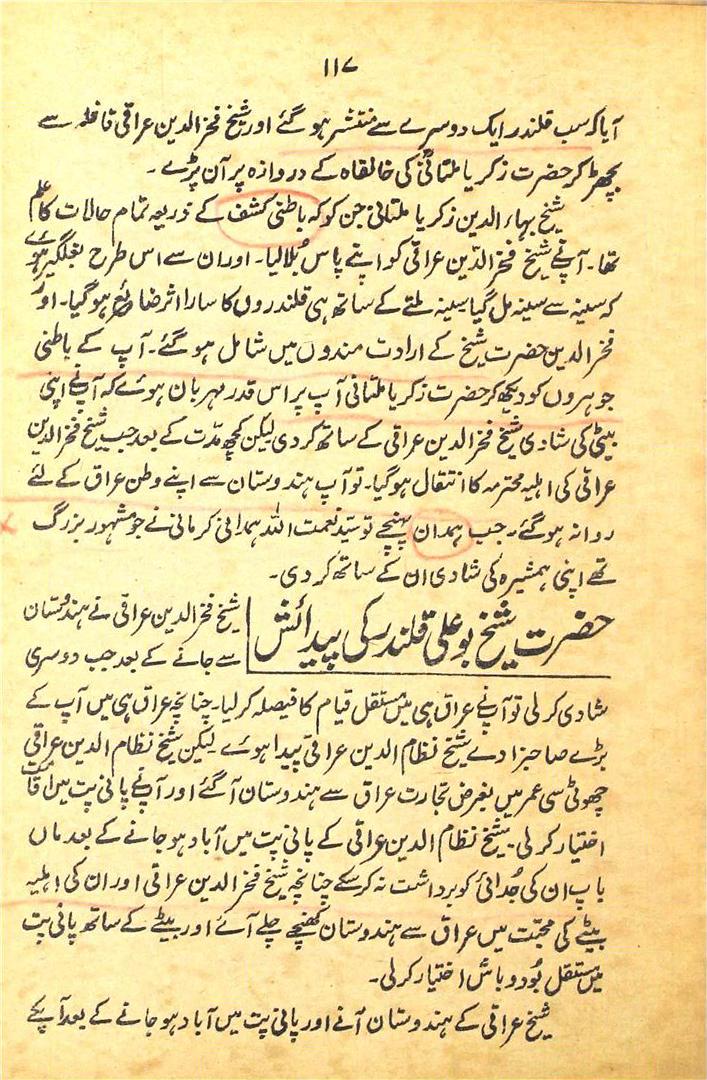 ۱۱۷
آیا کہ سب قلندر ایک دوسرے سے منتشر ہو گئے اور شیخ فخر الدین عراقی قافلہ سے
بچھڑ کر حضرت زکریا ملتانیؒ کی خانقاہ کے دروازہ پر آن پڑے۔
شیخ بہاء الدین زکریا ملتانی جن کو کہ باطنی کشف کے ذریعہ تمام حالات کا علم
تھا۔ آپنے شیخ فخر الدین عراقی کو اپنے پاس بُلا لیا۔ اور ان سے اس طرح بغلگیر ہوئے
کہ سینہ سے سینہ مل گیا سینہ ملتے کے ساتھ ہی قلندروں کا سارا اثر ضائع ہو گیا۔ اور
فخر الدین حضرت شیخ کے ارادت مندوں میں شامل ہو گئے۔ آپ کے باطنی
جوہروں کو دیکھ کر حضرت زکریا ملتانی آپ پر اس قدر مہربان ہوئے کہ آپنے اپنی
بیٹی کی شادی شیخ فخر الدین عراقی کے ساتھ کر دی لیکن کچھ مدّت کے بعد جب شیخ فخر الدین
عراقی کی اہلیہ محترمہ کا انتقال ہو گیا۔ تو آپ ہندوستان سے اپنے وطن عراق کے لئے
روانہ ہو گئے۔ جب ہمدان پہنچے تو سیّد نعمت اللہ ہمدانی کرمانی نے جو مشہور بزرگ
تھے اپنی ہمشیرہ کی شادی ان کے ساتھ کر دی۔
حضرت شیخ بو علی قلندر کی پیدائش
شیخ فخر الدین عراقی نے ہندوستان
سے جانے کے بعد جب دوسری
شادی کر لی تو آپنے عراق ہی میں مستقل قیام کا فیصلہ کر لیا۔ چنانچہ عراق ہی میں آپ کے
بڑے صاحبزادے شیخ نظام الدین عراقی پیدا ہوئے لیکن شیخ نظام الدین عراقی
چھوٹی سی عمر میں بغرض تجارت عراق سے ہندوستان آ گئے اور آپنے پانی پت میں اقامت
اختیار کر لی۔ شیخ نظام الدین عراقی کے پانی پت میں آباد ہو جانے کے بعد ماں
باپ ان کی جُدائی کو برداشت نہ کر سکے چنانچہ شیخ فخر الدین عراقی اور ان کی اہلیہ
بیٹے کی محبّت میں عراق سے ہندوستان کھنچے چلے آئے اور بیٹے کے ساتھ پانی پت
میں مستقل بُود و باش اختیار کر لی۔
شیخ عراقی کے ہندوستان آنے اور پانی پت میں آباد ہو جانے کے بعد آپکے